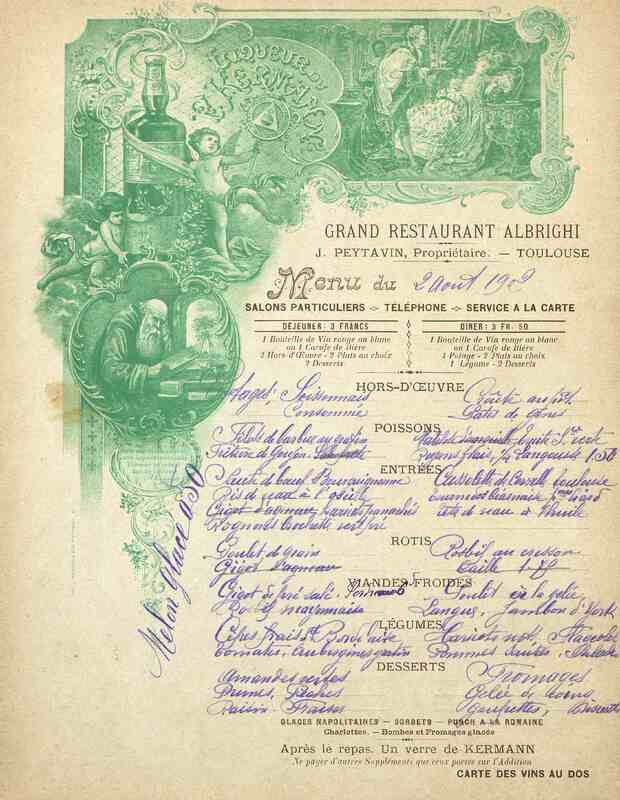 LIQUEUR DU
P. KERMANN
GRAND RESTAURANT ALBRIGHI
J. PEYTAVIN, Propriétaire. — TOULOUSE
Menu du 2 Aout 1909
SALONS PARTICULIERS TÉLÉPHONE SERVICE A LA CARTE
DÉJEUNER: 3 FRANCS
1 Bouteille de Vin rouge ou blanc
ou 1 Carafe de Bière
2 Hors-d'Œuvre - 2 Plats au choix
2 Desserts
DINER: 3 FR. 50
1 Bouteille de Vin rouge ou blanc
ou 1 Carafe de Bière
1 Potage - 2 Plats au choix
1 Légume - 2 Desserts
HORS-D'ŒUVRE
Soissonnais
Consommée
POISSONS
Filets de barbue au gratin
Friture de Goujon
frais, 1/2 Langouste 1.50
ENTRÉES
de bœuf Bourguignonne
Ris de veau à l'oseille
Gigot d'agneau panachés
Rognons Brochette vert pré
Tête de veau à l'huile
ROTIS
Poulet de grain
Gigot d'agneau
Rosbif au cresson
Caille 1.75
VIANDES FROIDES
Gigot de pré salé.
mayonnaise
Poulet à la gelée
Langue, Jambon d'York
LÉGUMES
Cèpes frais Bordelaise
Tomates, Aubergines gratin
Haricots verts, Flageolet
Pommes
DESSERTS
Amandes vertes
Prunes, Pêches
Raisin Fraises
Fromages
Gelée de Coing
Gaufrettes, Biscuits
Melon glacé 0.50
GLACES NAPOLITAINES — SORBETS — PUNCH A LA ROMAINE
Charlottes. — Bombes et Fromages glacés
Après le repas. Un verre de KERMANN
Ne payer d'autres Suppléments que ceux portés sur l'Addition
CARTE DES VINS AU DOS